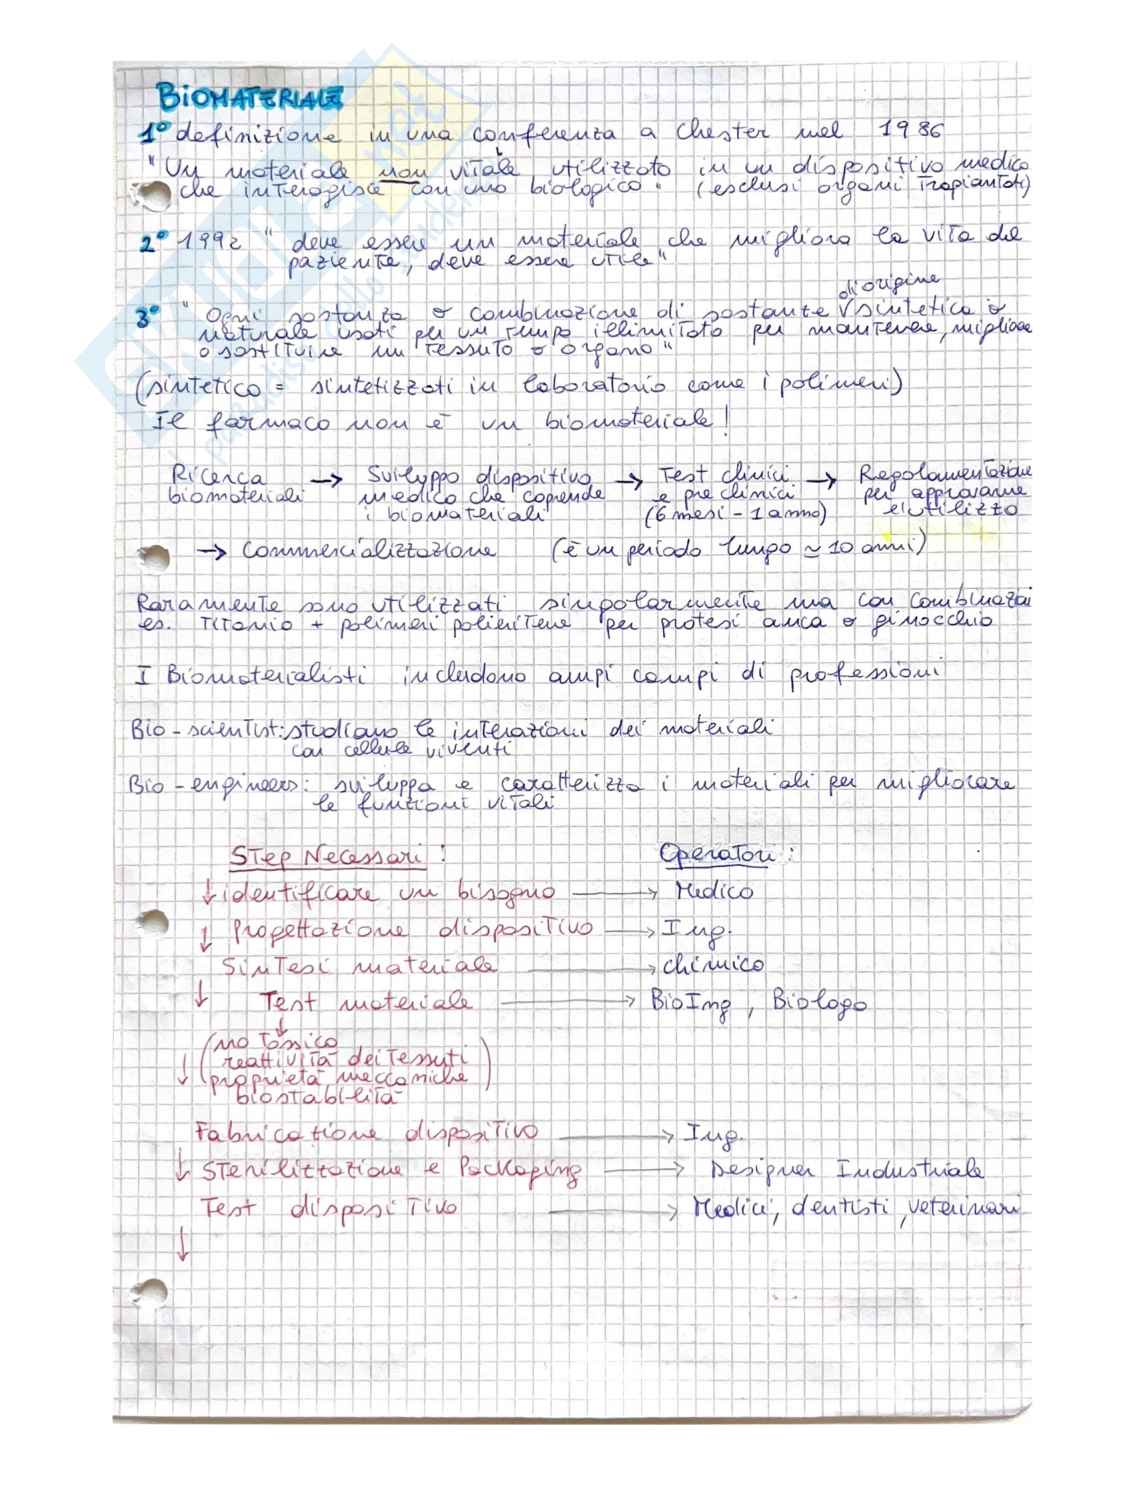 BIOMATERIALE
1° definizione in una conferenza a Chester nel 1986
"Un materiale non vitale utilizzato in un dispositivo medico
che interagisce con uno biologico" (esclusi organi trapiantati)
2° 1992 " deve essere un materiale che migliora la vita del
paziente, deve essere utile"
di origine
3° " Ogni sostanza o combinazione di sostanze sintetica o
naturale usati per un tempo illimitato per mantenere, migliorare
o sostituire un tessuto o organo"
(sintetico = sintetizzati in laboratorio come i polimeri)
Il farmaco non è un biomateriale!
Ricerca → Sviluppo dispositivo → Test clinici → Regolamentazione
biomateriali medico che coprende e pre clinici per approvarne
i biomateriali (6 mesi - 1 anno) e utilizzo
→ Commercializzazione (è un periodo lungo ≃ 10 anni)
Raramente sono utilizzati singolarmente ma con combinazai
es. Titanio + polimeri polietilene per protesi anca o ginocchio
I Biomaterialisti includono ampi campi di professioni
Bio-scientist: studiano le interazioni dei materiali
con cellule viventi
Bio-engineers: sviluppa e caratterizza i materiali per migliorare
le funzioni vitali
Step Necessari: Operatori:
↓ identificare un bisogno → Medico
↓ Progettazione dispositivo → Ing.
Sintesi materiale → chimico
↓ Test materiale → BioIng, Biologo
↓
(no tossico
reattività dei tessuti
↓ proprietà meccaniche)
biostabilità
Fabbricazione dispositivo → Ing.
↓ Sterilizzazione e Packaging → Designer Industriale
Test dispositivo → Medici, dentisti, veterinari
↓